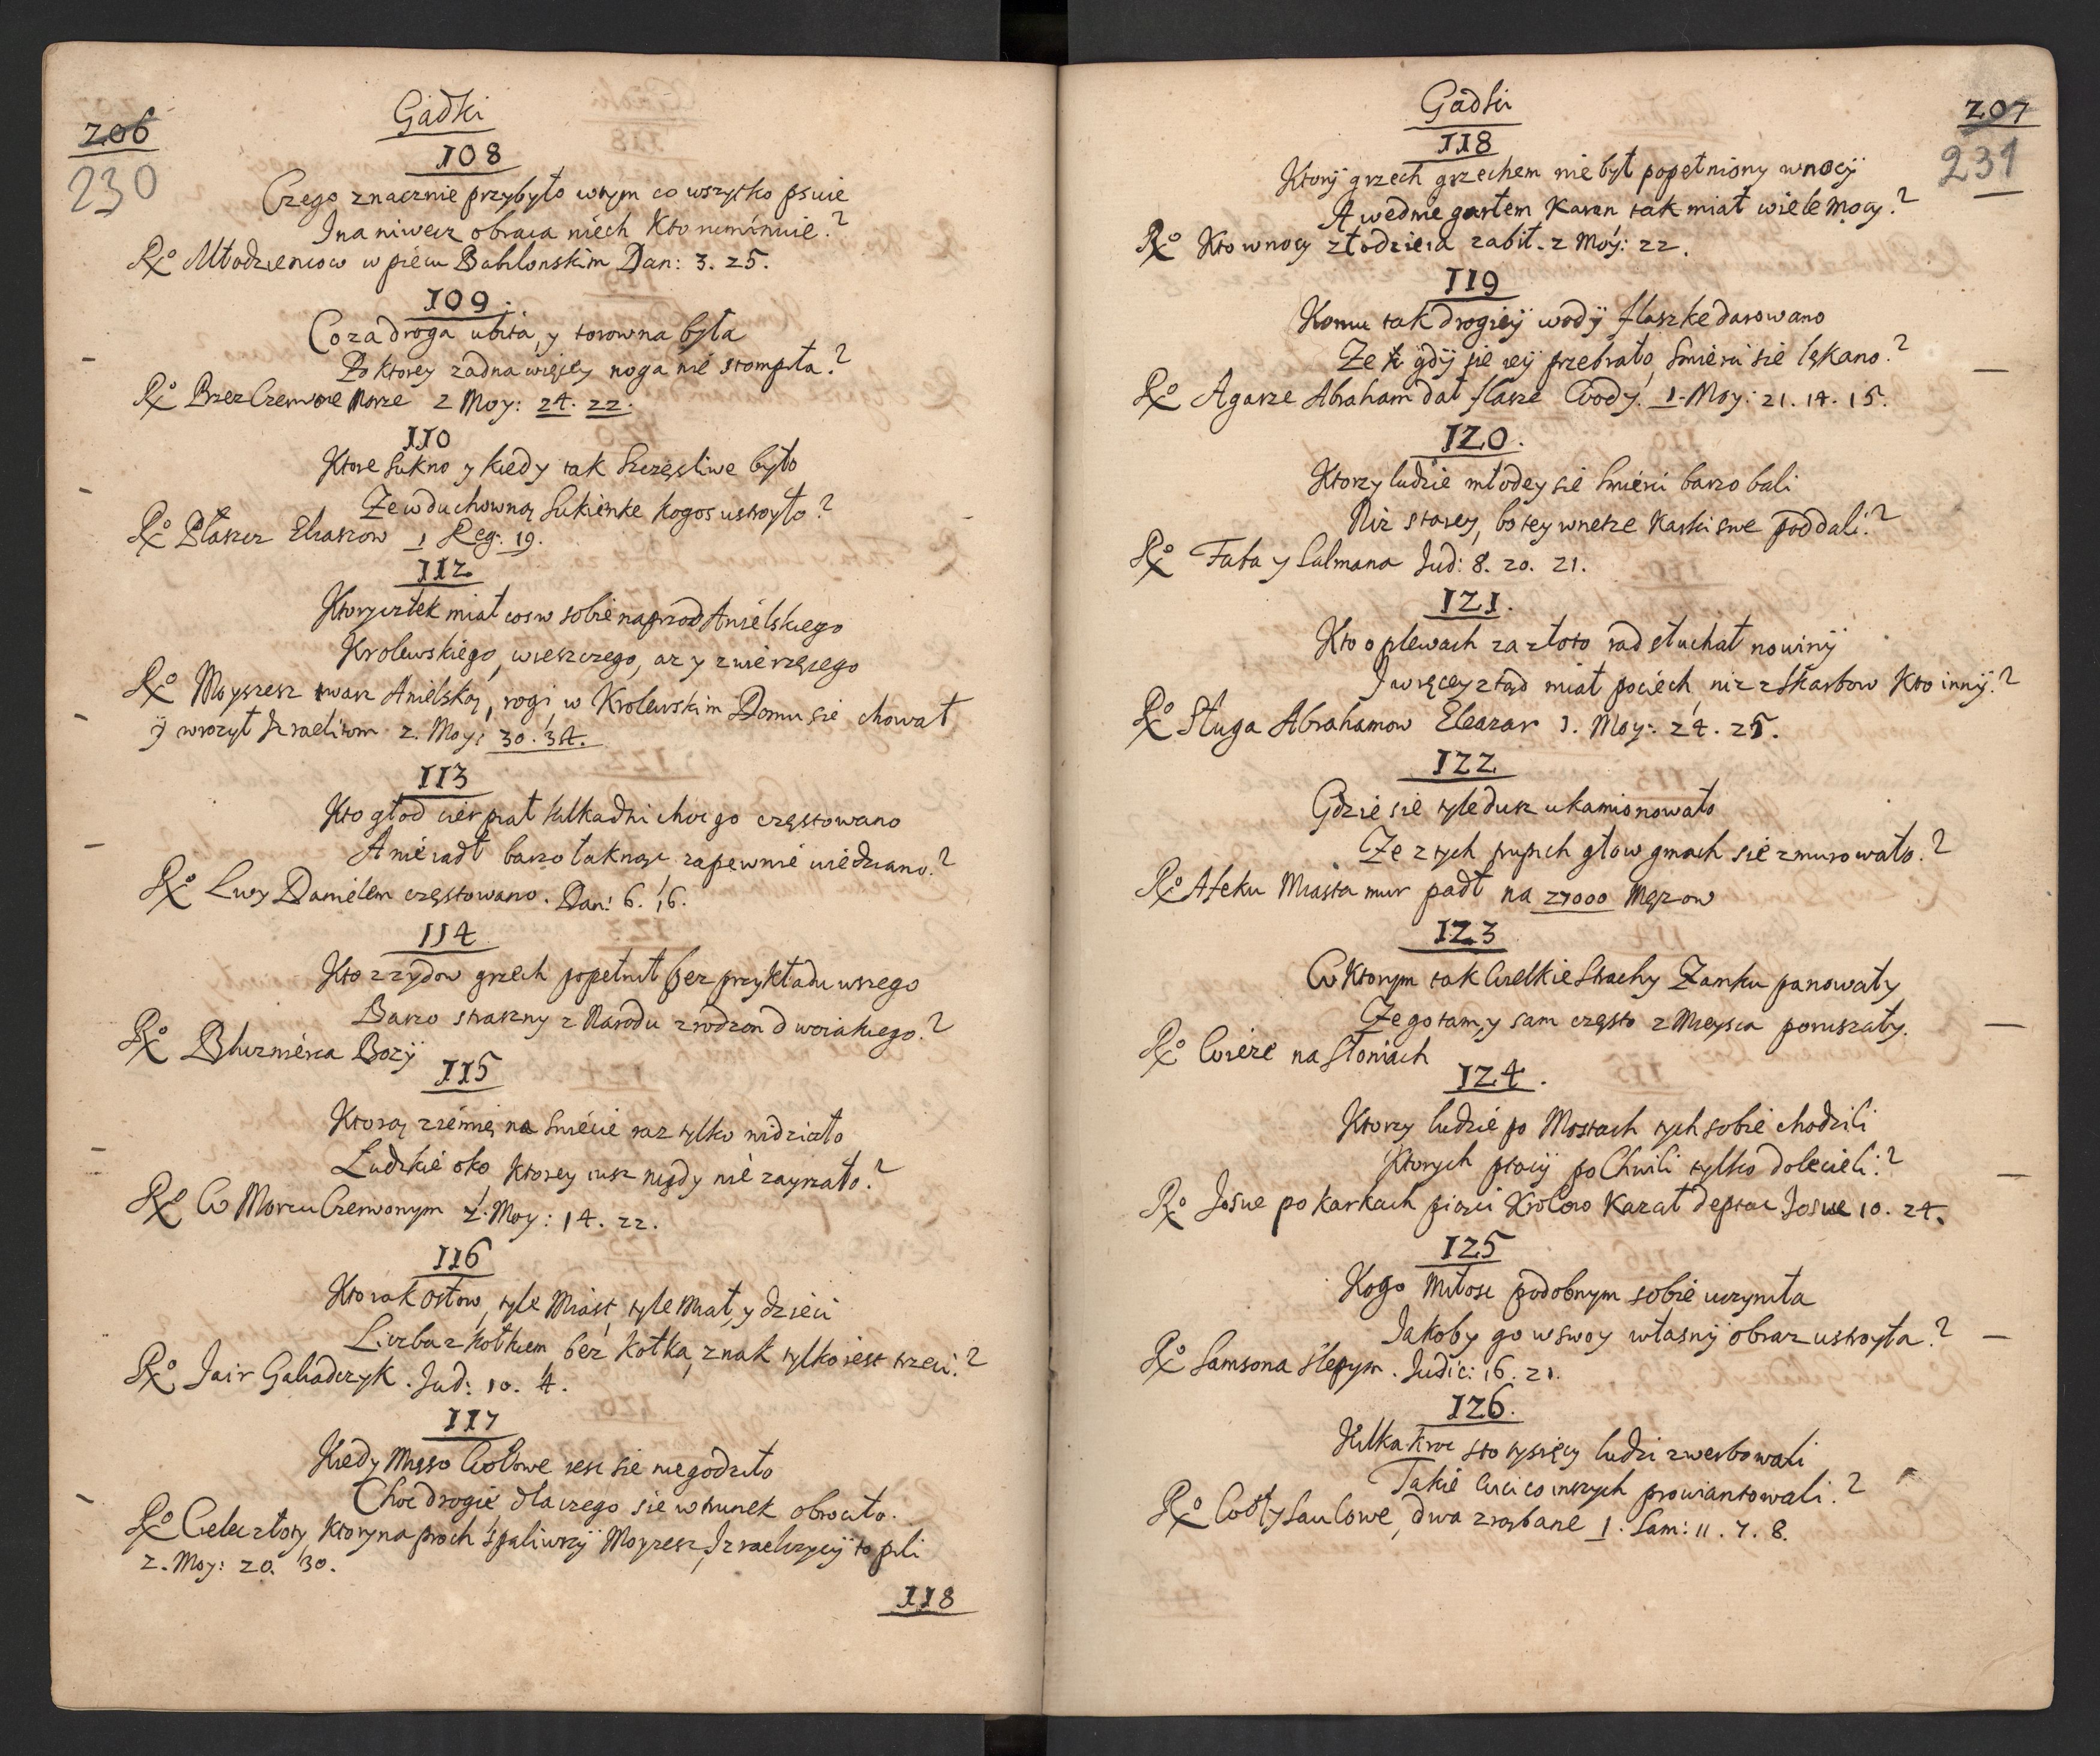 206
230
Gadki
108
Czego znacznie przybyło w tym co wszytko psuie
I na niwecz obraca niech Kto
Rx Młodziencow w piecu Bablonskim Dan: 3. 25.
109.
Co za droga ubita, y torowna była
Po ktorey zadna więjcy noga nie stompiła?
Rx Przez Czerwone Morze 2 Moy: 24. 22.
110
Ktore Sukno y kiedy tak Szczęsliwe było
Ze w duchowną Sukienke kogos ustroyło?
Rx Płaszcz Eliaszow 1 Reg. 19.
112
Ktory człek miał cos w sobie naprzod Anielskiego
Krolewskiego, wieszczego, az y zwierzęcego
Rx Moyszesz twarz Anielską, rogi, w Krolewskim Domu sie chował
ÿ wrozył Izraelitom 2. Moy: 30. 34.
113
Kto głod cierpiał kilka dni choc go częstowano
A nie iadł barzo łaknąc zapewnie wiedziano?
Rx Lwy Danielem częstowano. Dan: 6. 16.
114
Kto z zydow grzech popełnił bez przykładu wszego
Barzo straszny z Narodu zrodzon dwoiakiego?
Rx Bluznierca Bozÿ
115
Ktorą ziemię na Swiecie raz tylko widziało
Ludzkie oko, Ktorey iusz nigdy nie zayrzało?
Rx W Morzu Czerwonym 2. Moy: 14. 22.
116
Kto iak osłow, tyle Miast, tyle Miał, y dzieci
Liczba z kołkiem bez kołka, znak tylko iest trzeci?
Rx Jair Galiadczyk. Jud: 10. 4.
117
Kiedy Mięso Wołowe iesc sie niegodziło
Choc drogie dla czego sie w trunek obrociło.
Rx Cielec złoty, Ktory na proch spaliwszÿ Moyzesz, Izraelczycÿ to pili
2. Moy: 20. 30.
118
Gadki
207
231
118
Ktorÿ grzech grzechem nie był popełniony w nocÿ
A we dnie gartłem Karan tak miał wiele Mocy?
Rx Kto w nocy złodzieia zabił. 2 Moÿ: 22.
119
Komu tak drogieÿ wodÿ flaszke darowano
Ze gdÿ sie ieÿ przebrało, Smierci sie lękano?
Rx Agarze Abraham dał flasze Wody. 1. Moy: 21. 14. 15.
120.
Ktorzy ludzie młodey sie Smierci barzo bali
Niz starey, bo tey wnetze Karki swe poddali?
Rx Faba y Salmana Jud: 8. 20. 21.
121.
Kto o plewach za złoto rad słuchał nowinÿ
I więcey ztąd miał pociech, niz z Skarbow Kto innÿ?
Rx Sługa Abrahamow Eleazar 1. Moy: 24. 25.
122
Gdzie sie tyle dusz ukamionowało
Ze z tych pupich głow gmach sie zmurowało?
Rx Afeku Miasta mur padł na 27000 Mężow
123
W Ktorym tak Wielkie Strachy Zamku panowały
Ze go tam, y sam często z Mieysca poruszały.
Rx Wieże na Słoniach
124.
Ktorzy ludzie po Mostach tych sobie chodzili
Ktorych ptacÿ po Chwili tylko dolecieli?
Rx Josue po karkach piąci Krolow Kazał deptac Josue 10. 24.
125
Kogo Miłosc podobnym sobie uczyniła
Jakoby go w swoy własnÿ obraz ustroyła?
Rx Samsona slepym. Judic: 16. 21.
126.
Kilka kroc sto tysięcy ludzi zwerbowali
Takie co inszych prowiantowali?
Rx Woły Saulowe, dwa zrąbane 1. Sam: 11. 7. 8.